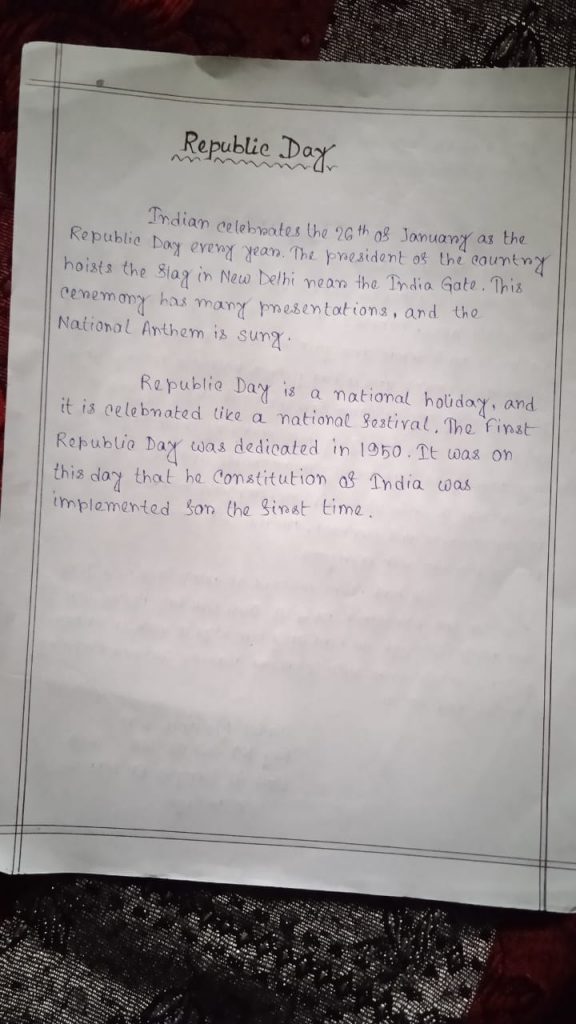 Republic Day
Indian celebrates the 26th of January as the
Republic Day every year. The president of the country
hoists the flag in New Delhi near the India Gate. This
ceremony has many presentations, and the
National Anthem is sung.
Republic Day is a national holiday, and
it is celebrated like a national festival. The First
Republic Day was dedicated in 1950. It was on
this day that he Constitution of India was
implemented for the first time.